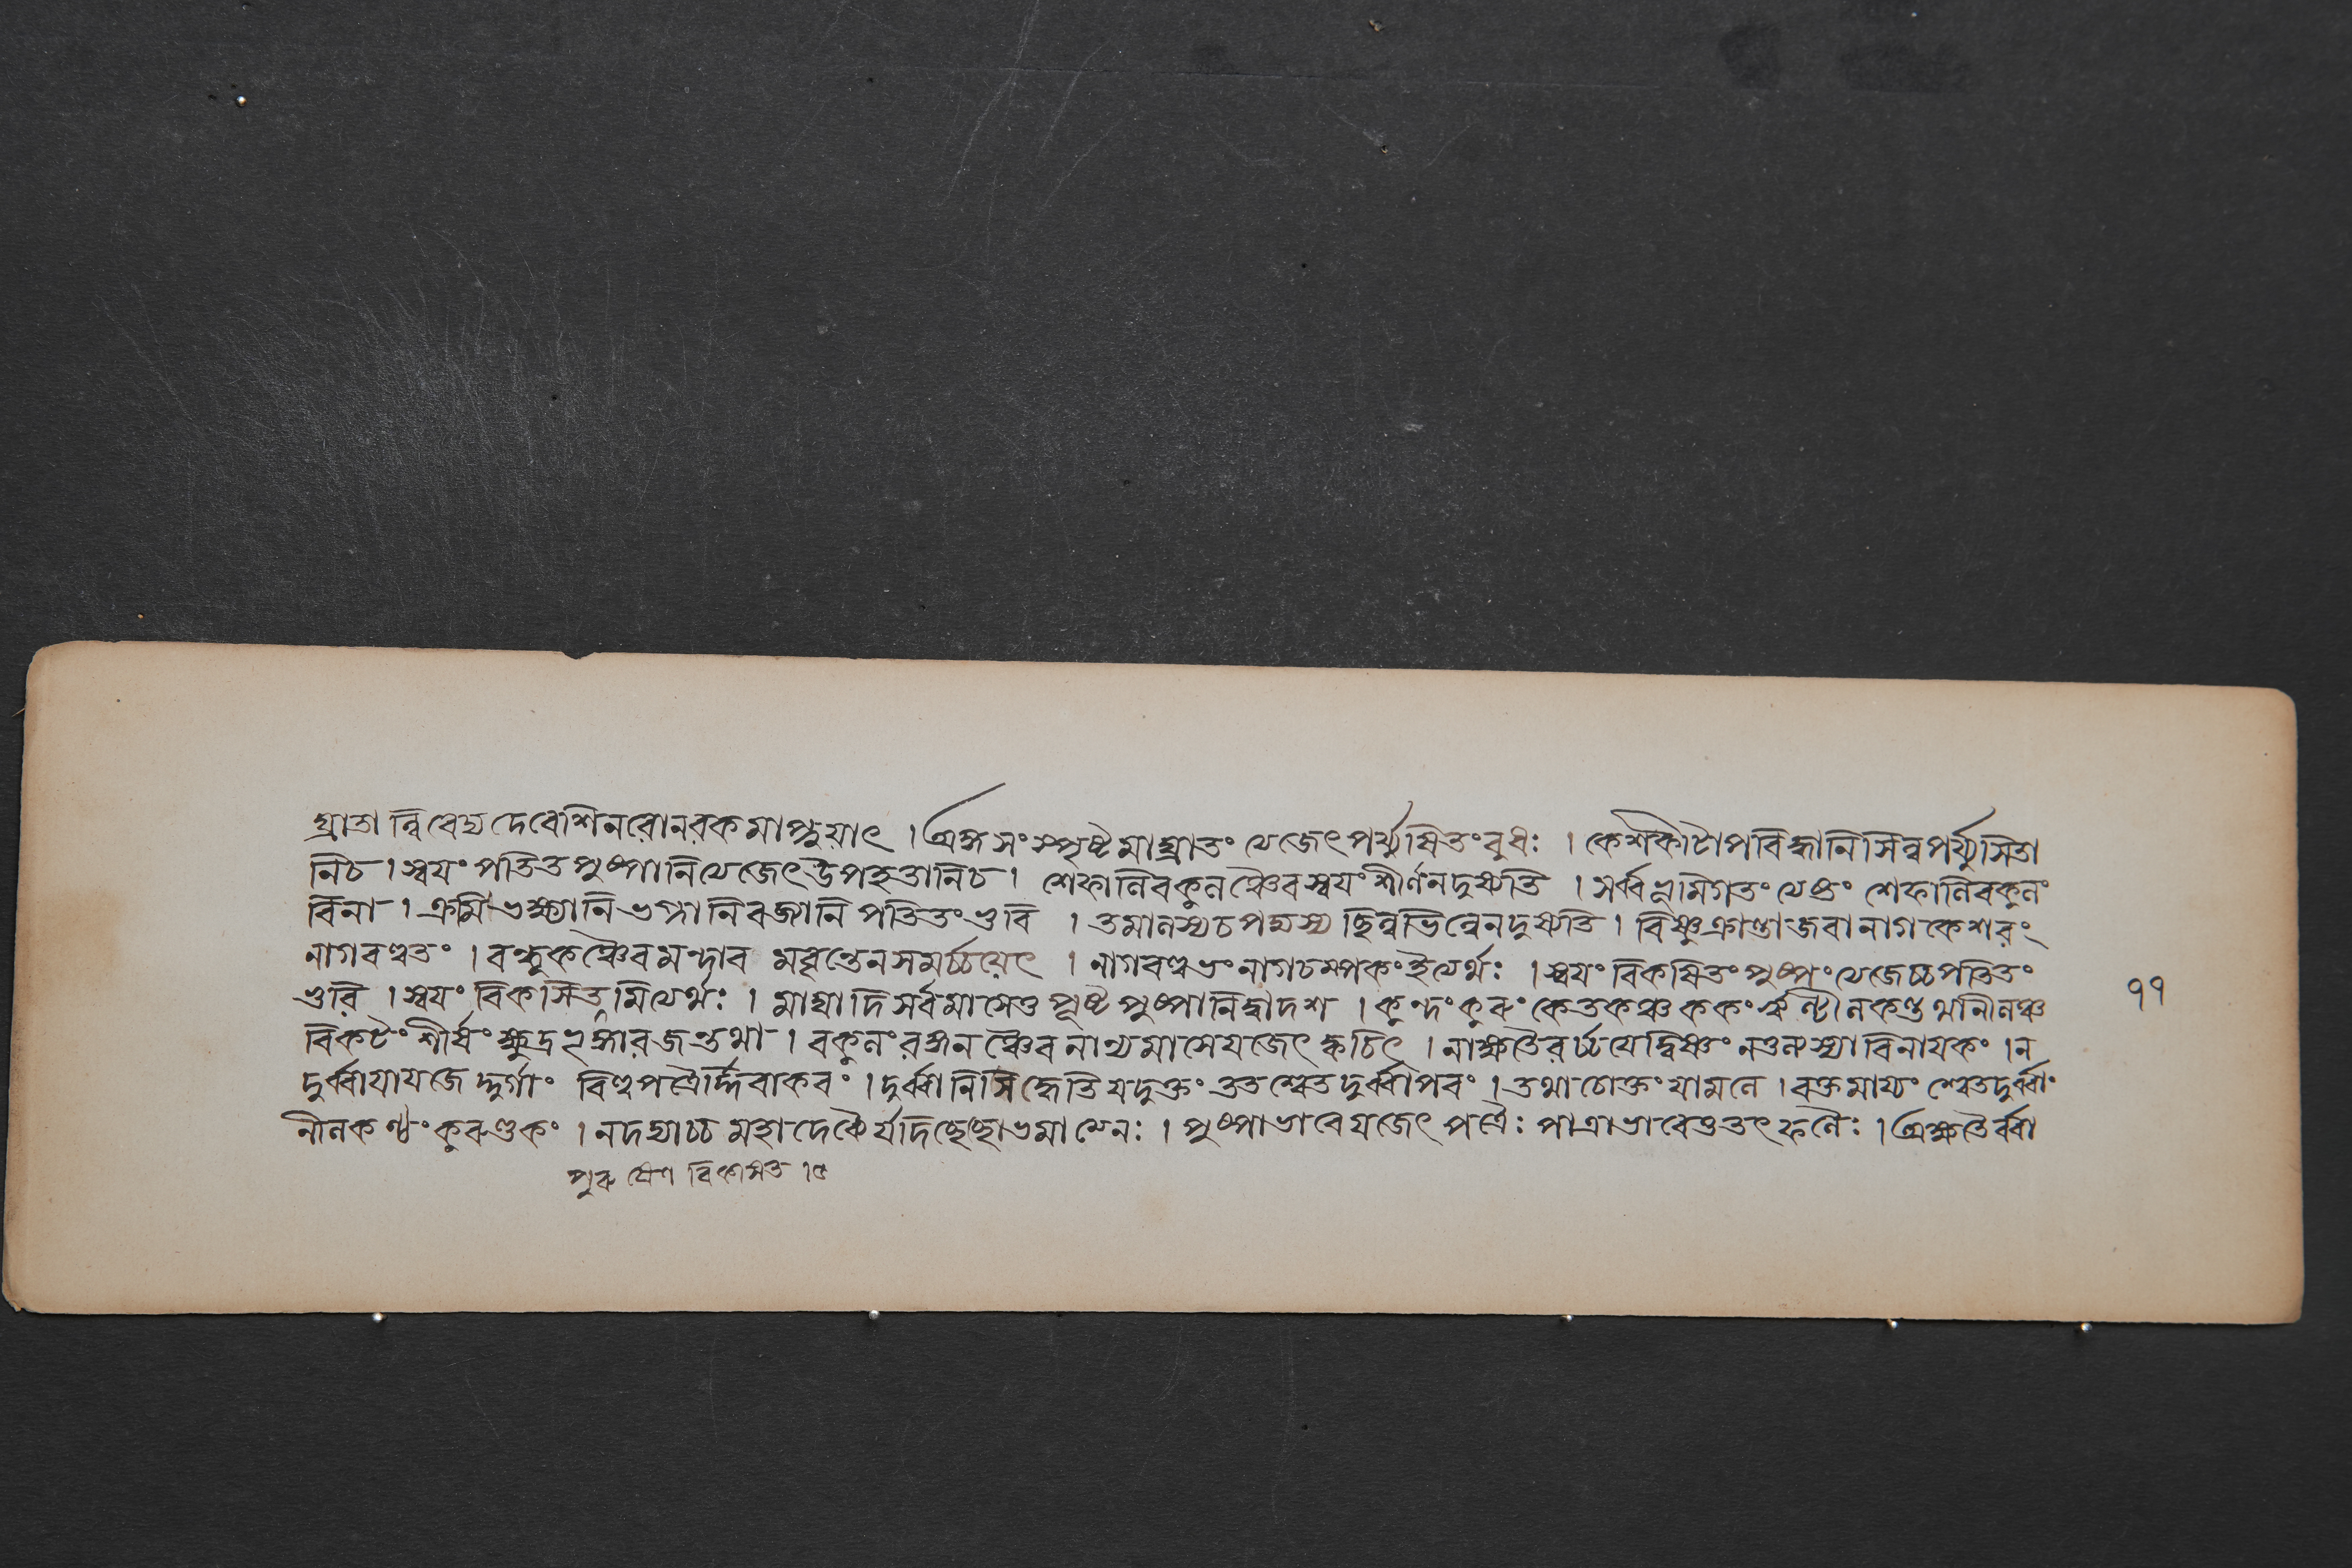 ঘ্রাতান্নিবেদ্য দেবেশি নরো নরকমাপ্নুয়াৎ । অঙ্গসংস্পৃষ্টমাঘ্রাতং ত্যেজেৎ পর্য্যুষিতং বুধঃ । কেশকীটাপবিদ্ধানি সিন্ন পর্য্যুসিতা
নি চ । স্বয়ং পতিত পুষ্পানি ত্যেজেৎ উপহতানি চ । শেফালি বকুলঞ্চৈব স্বয়ং শীর্ণং ন দুষ্যতি । সর্ব্বভূমিগতং ত্যেক্তং শেফালি বকুলং
বিনা । ক্রমিভক্ষ্যানি ভগ্নানি বজ্যানি পতিতং ভুবি । তমালস্য চ পদ্মস্য ছিন্নভিন্নে ন দুষ্যতি । বিষ্ণুক্রান্তা জবা নাগকেশরং
নাগবল্লভং । বন্ধুকঞ্চৈব মন্দার মবৃন্তেন সমর্চ্চয়েৎ । নাগবল্লভং নাগচম্পকং ইত্যের্থঃ । স্বয়ং বিকষিতং পুষ্পং ত্যেজেচ্চ পতিতং
ভুবি । স্বয়ং বিকসিতমিত্যের্থঃ । মাঘাদি সর্বমাসেতু পূষ্ট পুষ্পানি দ্বাদশ । কুন্দং কুরু কেতকঞ্চ ককং ঝিন্টী নকণ্ড থনীনঞ্চ
বিকটং শীর্ষং ক্ষুদ্র ভৃঙ্গারজন্তথা । বকুলং রঙ্গনঞ্চৈব নান্যমাসে যজেৎ ক্কচিৎ । নাক্ষতৈরর্চ্চয়েদ্বিষ্ণুং ন তুলস্যা বিনায়কং । ন
দুর্ব্বায়া যজেদ্দুর্গাং বিল্বপত্রৈর্দ্দিবাকরং । দুর্ব্বা নিসিদ্ধেতি যদুক্তং তত শ্বেতদুর্ব্বাপরং । তথা চোক্তং যামলে । রক্তমায্যং শ্বেতদুর্ব্বাং
নীলকণ্ঠং কুরুণ্ডকং । ন দদ্যাচ্চ মহাদেব্যৈ র্যদিচ্ছেচ্ছোভমাত্মেনঃ । পুষ্পাভাবে যজেৎ পত্রৈঃ পাত্রাভাবেতু তৎ ফলৈঃ । অক্ষতৈর্ব্বা
পুরুষেণ বিকাসিত । ৫
৭৭